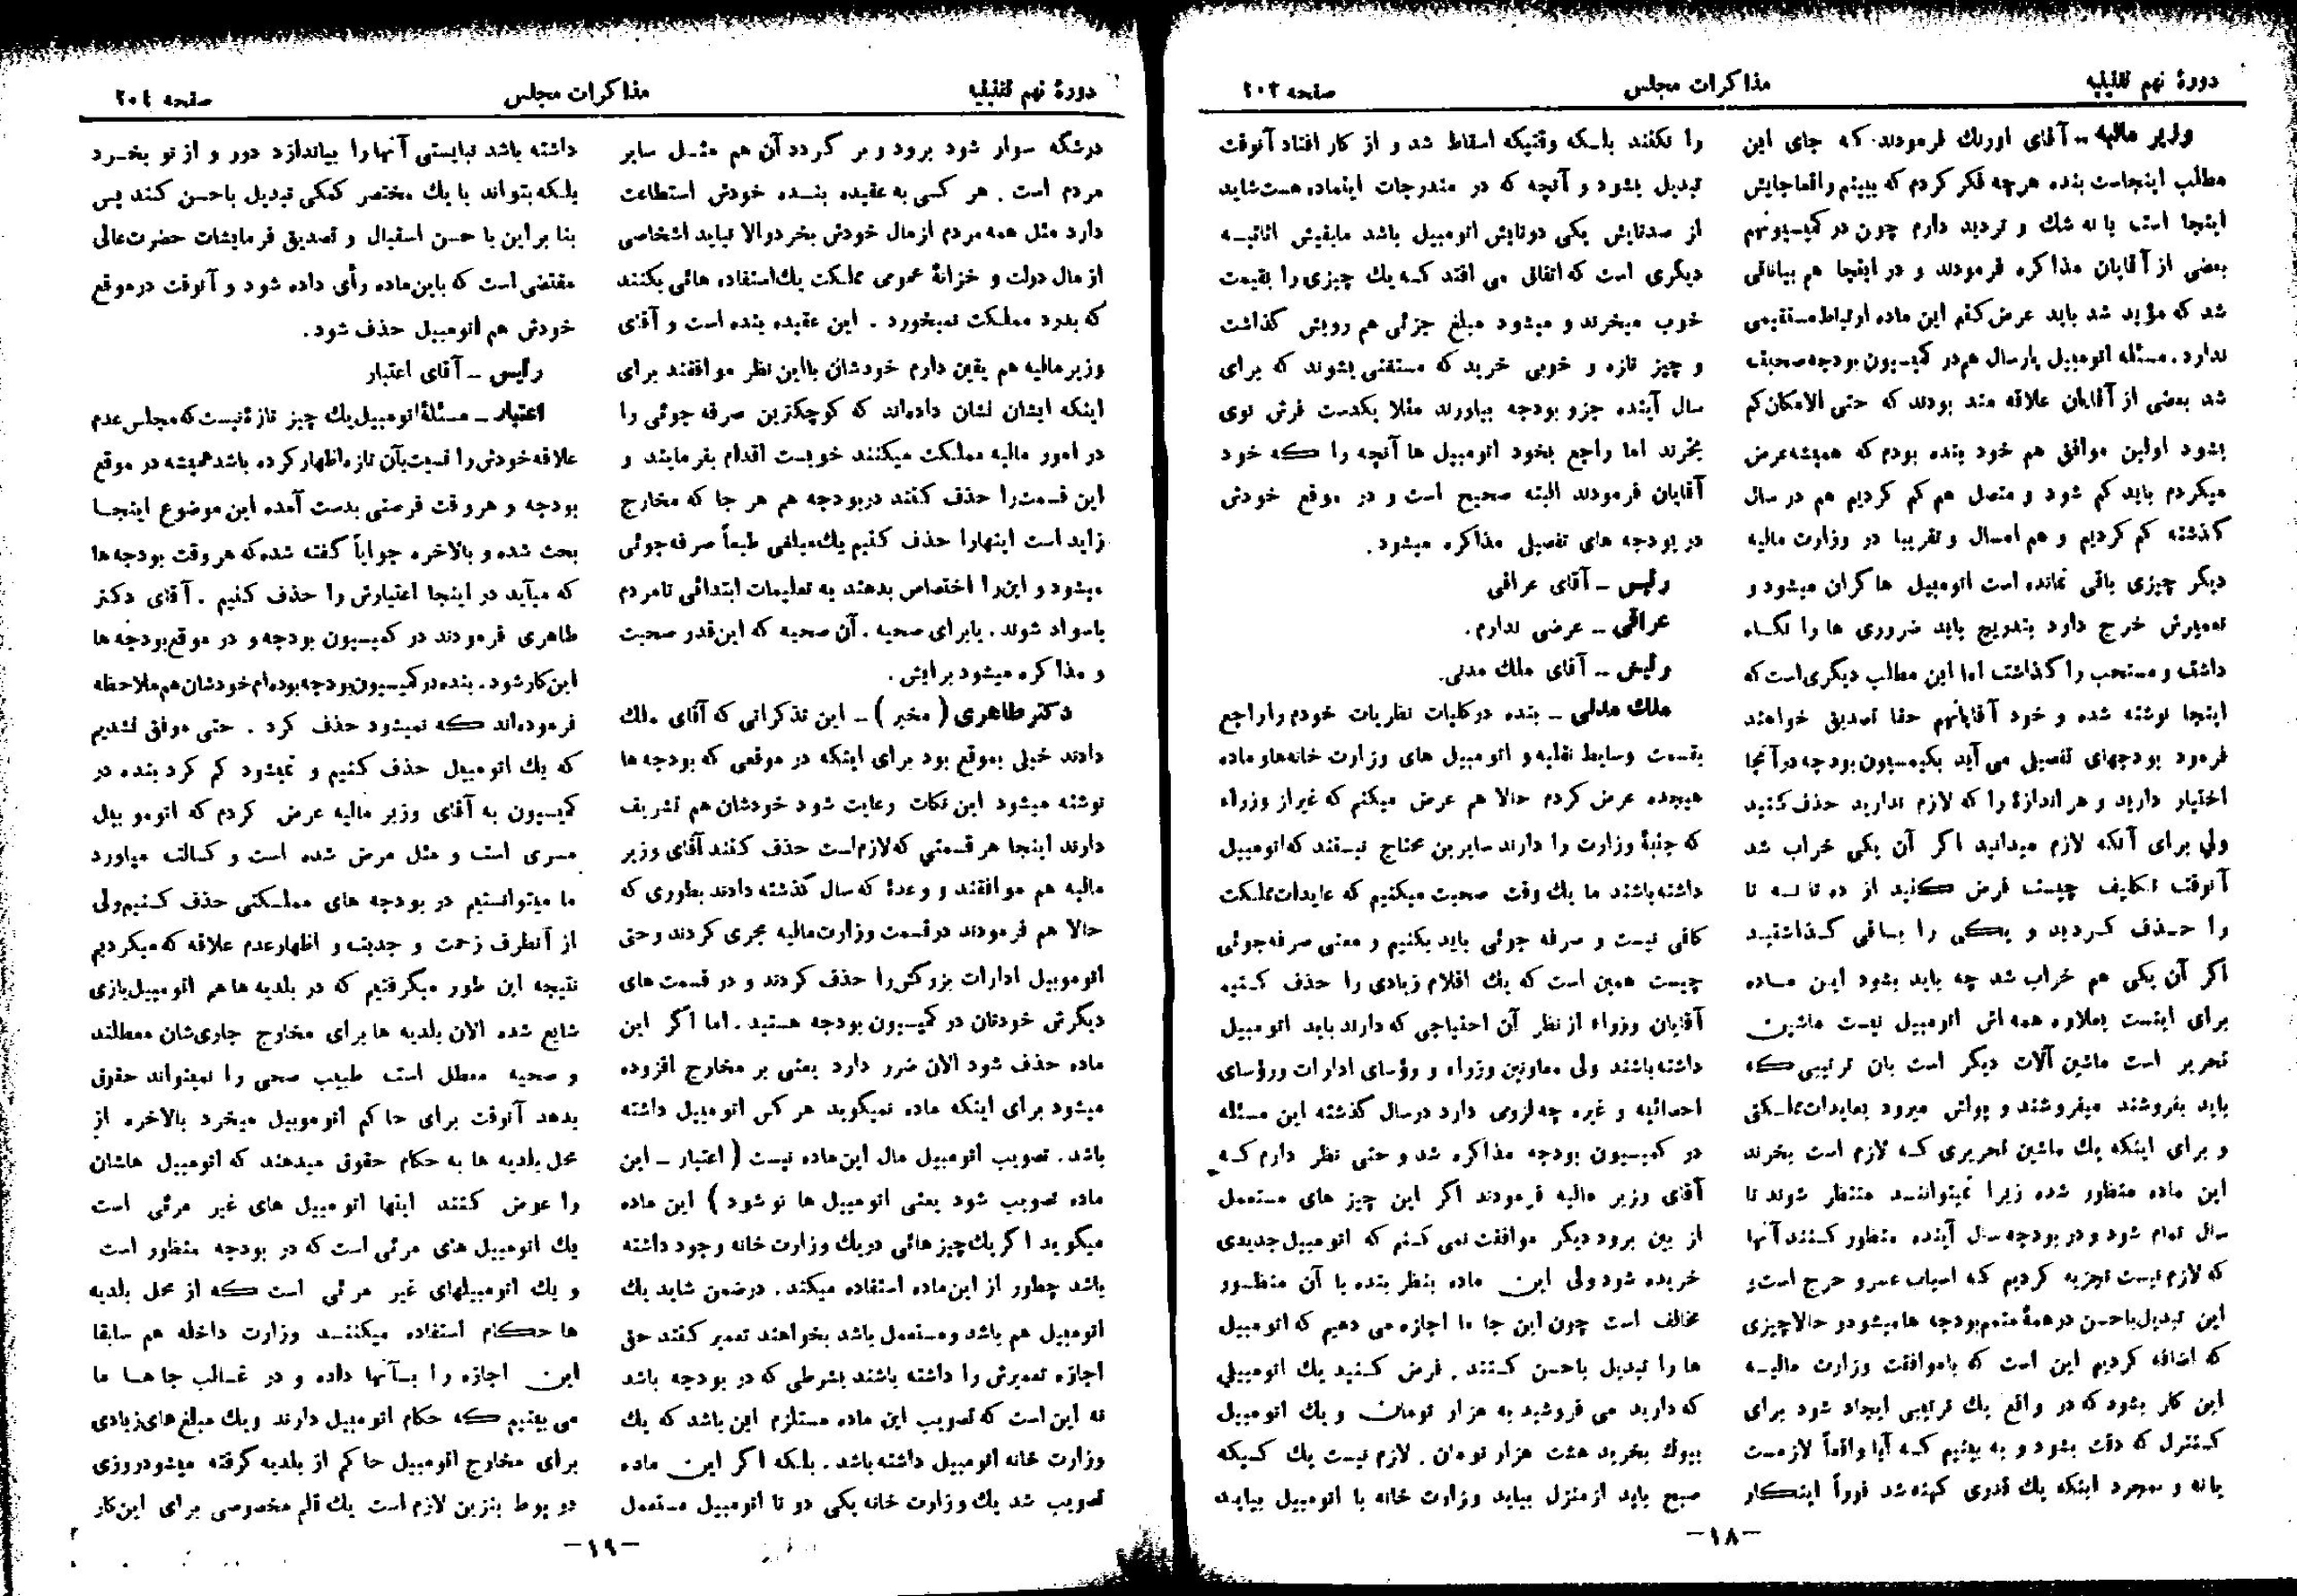 دورهٔ نهم تقنینیه
مذاکرات مجلس
صفحه ۲۰۳
وزیر مالیه ـ آقای اورنك فرمودند که جای این
مطلب اینجاست بنده هرچه فکر کردم که ببینم واقعاجایش
اینجا است یا نه شك و تردید دارم چون در کمیسیونهم
بعضی از آقایان مذاکره فرمودند و در اینجا هم بیاناتی
شد که مؤید شد باید عرض کنم این ماده ارتباط مستقیمی
ندارد. مسئله اتومبیل پارسال هم در کمیسیون بودجه صحبت
شد بعضی از آقایان علاقه مند بودند که حتی الامکان کم
بشود اولین موافق هم خود بنده بودم که همیشه عرض
میکردم باید کم شود و متصل هم کم کردیم هم در سال
گذشته کم کردیم و هم امسال و تقریبا در وزارت مالیه
دیگر چیزی باقی نمانده است اتومبیل ها گران میشود و
تعمیرش خرج دارد بتدریج باید ضروری ها را نگاه
داشت و مستحب را گذاشت اما این مطالب دیگری است که
اینجا نوشته شده و خود آقایانهم حقا تصدیق خواهند
فرمود بودجهای تفصیلی می آید بکمیسیون بودجه در آنجا
اختیار دارید و هر اندازهٔ را که لازم ندارید حذف کنید
ولی برای آنکه لازم میدانید اگر آن یکی خراب شد
آنوقت تکلیف چیست فرض کنید از ده تا نه تا
را حذف کردید و یکی را باقی گذاشتید
اگر آن یکی هم خراب شد چه باید بشود این ماده
برای اینست بعلاوه همه اش اتومبیل نیست ماشین
تحریر است ماشین آلات دیگر است بان ترتیبی که
باید بفروشند میفروشند و پولش میرود بعایدات مملکتی
و برای اینکه یك ماشین تحریری که لازم است بخرند
این ماده منظور شده زیرا نمیتوانند منتظر شوند تا
سال تمام شود و در بودجه سال آینده منظور کنند آنها
که لازم نیست تجزیه کردیم که اسباب عسر و حرج است و
این تبدیل باحسن در همهٔ متمم بودجه ها میشود حالا چیزی
که اضافه کردیم این است که باموافقت وزارت مالیه
این کار بشود که در واقع یك ترتیبی ایجاد شود برای
کنترل که دقت بشود و به بینیم که آیا واقعاً لازمست
یا نه و بمجرد اینکه یك قدری کهنه شد فوراً اینکار
را نکنند بلکه وقتیکه اسقاط شد و از کار افتاد آنوقت
تبدیل بشود و آنچه که در مندرجات اینماده هست شاید
از صدتایش یکی دوتایش اتومبیل باشد مابقیش اثاثیه
دیگری است که اتفاق می افتد که یك چیزی را بقیمت
خوب میخرند و میشود مبلغ جزئی هم رویش گذاشت
و چیز تازه و خوبی خرید که مستغنی بشوند که برای
سال آینده جزو بودجه بیاورند مثلا یکدست فرش نوی
بخرند اما راجع بخود اتومبیل ها آنچه را که خود
آقایان فرمودند البته صحیح است و در موقع خودش
در بودجه های تفصیلی مذاکره میشود.
رئیس ـ آقای عراقی
عراقی ـ عرضی ندارم.
رئیس ـ آقای ملك مدنی.
ملك مدنی ـ بنده در کلیات نظریات خودم را راجع
بقسمت وسایط نقلیه و اتومبیل های وزارت خانه ها و ماده
هیجده عرض کردم حالا هم عرض میکنم که غیر از وزراء
که جنبهٔ وزارت را دارند سایرین محتاج نیستند که اتومبیل
داشته باشند ما یك وقت صحبت میکنیم که عایدات مملکت
کافی نیست و صرفه جوئی باید بکنیم و معنی صرفه جوئی
چیست همین است که یك اقلام زیادی را حذف کنیم
آقایان وزراء از نظر آن احتیاجی که دارند باید اتومبیل
داشته باشند ولی معاونین وزراء و رؤسای ادارات و رؤسای
احصائیه و غیره چه لزومی دارد در سال گذشته این مسئله
در کمیسیون بودجه مذاکره شد و حتی نظر دارم که
آقای وزیر مالیه فرمودند اگر این چیز های مستعمل
از بین برود دیگر موافقت نمی کنم که اتومبیل جدیدی
خریده شود ولی این ماده بنظر بنده با آن منظور
مخالف است چون این جا ما اجازه می دهیم که اتومبیل
ها را تبدیل باحسن کنند. فرض کنید یك اتومبیلی
که دارید می فروشید به هزار تومان و یك اتومبیل
بیوك بخرید هشت هزار تومان. لازم نیست یك کسیکه
صبح باید از منزل بیاید وزارت خانه با اتومبیل بیاید
ـ۱۸ـ
دورهٔ نهم تقنینیه
مذاکرات مجلس
صفحه ۲۰۴
درشگه سوار شود برود و بر گردد آن هم مثل سایر
مردم است. هر کسی به عقیده بنده خودش استطاعت
دارد مثل همه مردم از مال خودش بخرد والا نباید اشخاصی
از مال دولت و خزانهٔ عمومی مملکت یك استفاده هائی بکنند
که بدرد مملکت نمیخورد. این عقیده بنده است و آقای
وزیر مالیه هم یقین دارم خودشان بااین نظر موافقند برای
اینکه ایشان نشان داده‌اند که کوچکترین صرفه جوئی را
در امور مالیه مملکت میکنند خوبست اقدام بفرمایند و
این قسمت را حذف کنند در بودجه هم هر جا که مخارج
زاید است اینها را حذف کنیم یك مبلغی طبعاً صرفه جوئی
میشود و این را اختصاص بدهند به تعلیمات ابتدائی تا مردم
باسواد شوند. یا برای صحیه. آن صحیه که این قدر صحبت
و مذاکره میشود برایش.
دکتر طاهری ( مخبر ) ـ این تذکراتی که آقای ملك
دادند خیلی بموقع بود برای اینکه در موقعی که بودجه ها
نوشته میشود این نکات رعایت شود خودشان هم تشریف
دارند اینجا هر قسمتی که لازم است حذف کنند آقای وزیر
مالیه هم موافقند و وعدهٔ که سال گذشته دادند بطوری که
حالا هم فرمودند در قسمت وزارت مالیه مجری کردند و حتی
اتوموبیل ادارات بزرگش را حذف کردند و در قسمت های
دیگرش خودتان در کمیسیون بودجه هستید. اما اگر این
ماده حذف شود الان ضرر دارد یعنی بر مخارج افزوده
میشود برای اینکه ماده نمیگوید هر کس اتومبیل داشته
باشد. تصویب اتومبیل مال این ماده نیست ( اعتبار ـ این
ماده تصویب شود یعنی اتومبیل ها نو شود ) این ماده
میگوید اگر یك چیز هائی در یك وزارت خانه وجود داشته
باشد چطور از این ماده استفاده میکند. در ضمن شاید یك
اتومبیل هم باشد و مستعمل باشد بخواهند تعمیر کنند حق
اجازه تعمیرش را داشته باشند بشرطی که در بودجه باشد
نه این است که تصویب این ماده مستلزم این باشد که یك
وزارت خانه اتومبیل داشته باشد. بلکه اگر این ماده
تصویب شد یك وزارت خانه یکی دو تا اتومبیل مستعمل
داشته باشد نبایستی آنها را بیاندازد دور و از نو بخرد
بلکه بتواند با یك مختصر کمکی تبدیل باحسن کند پس
بنا بر این با حسن استقبال و تصدیق فرمایشات حضرت عالی
مقتضی است که باین ماده رأی داده شود و آنوقت در موقع
خودش هم اتومبیل حذف شود.
رئیس ـ آقای اعتبار
اعتبار ـ مسئلهٔ اتومبیل یك چیز تازهٔ نیست که مجلس عدم
علاقه خودش را نسبت بآن تازه اظهار کرده باشد همیشه در موقع
بودجه و هر وقت فرصتی بدست آمده این موضوع اینجا
بحث شده و بالاخره جواباً گفته شده که هر وقت بودجه ها
که میآید در اینجا اعتبارش را حذف کنیم. آقای دکتر
طاهری فرمودند در کمیسیون بودجه و در موقع بودجه ها
این کار شود. بنده در کمیسیون بودجه بوده‌ام خودشان هم ملاحظه
فرموده‌اند که نمیشود حذف کرد. حتی موفق نشدیم
که یك اتومبیل حذف کنیم و نمیشود کم کرد بنده در
کمیسیون به آقای وزیر مالیه عرض کردم که اتوموبیل
مسری است و مثل مرض شده است و کسالت میاورد
ما میتوانستیم در بودجه های مملکتی حذف کنیم ولی
از آنطرف زحمت و جدیت و اظهار عدم علاقه که میکردیم
نتیجه این طور میگرفتیم که در بلدیه ها هم اتومبیل بازی
شایع شده الان بلدیه ها برای مخارج جاری شان معطلند
و صحیه معطل است طبیب صحی را نمیتواند حقوق
بدهد آنوقت برای حاکم اتوموبیل میخرد بالاخره از
محل بلدیه ها به حکام حقوق میدهند که اتومبیل هاشان
را عوض کنند اینها اتومبیل های غیر مرئی است
یك اتومبیل های مرئی است که در بودجه منظور است
و یك اتومبیلهای غیر مرئی است که از محل بلدیه
ها حکام استفاده میکنند وزارت داخله هم سابقا
این اجازه را بآنها داده و در غالب جاها ما
می بینیم که حکام اتومبیل دارند و یك مبلغ های زیادی
برای مخارج اتومبیل حاکم از بلدیه گرفته میشود روزی
دو پوط بنزین لازم است یك قلم مخصوصی برای این کار
ـ۱۹ـ